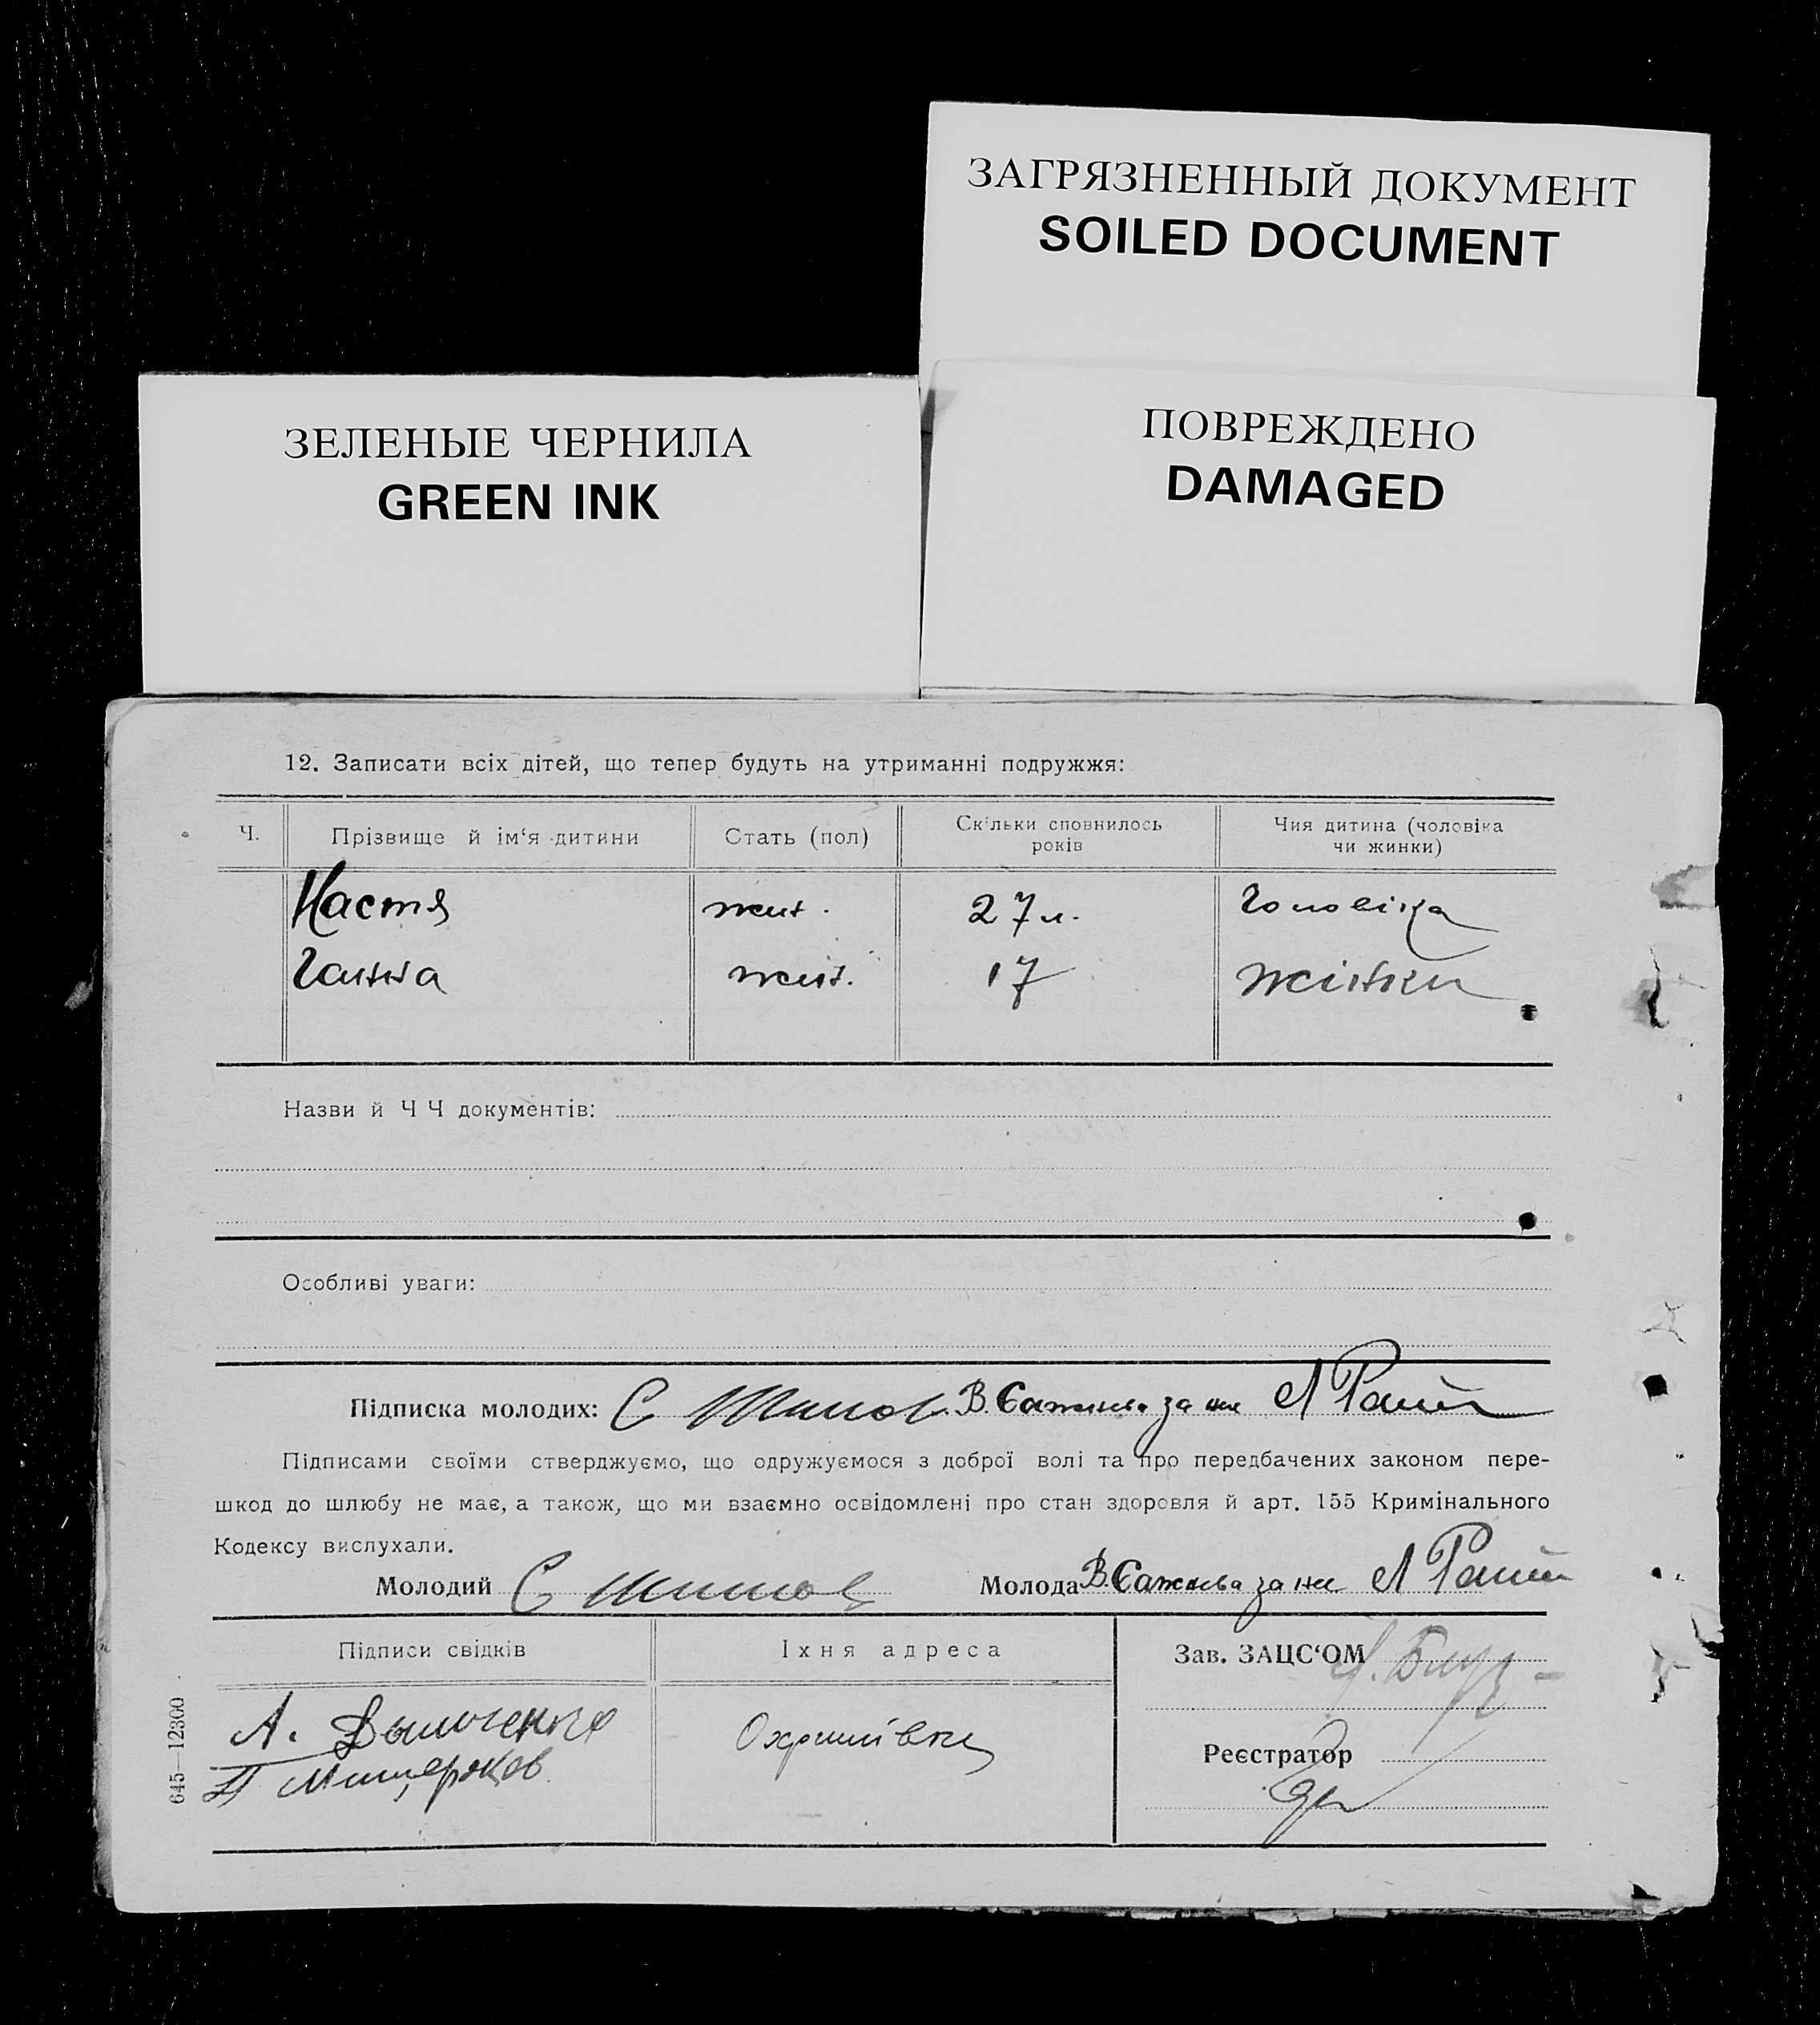 ЗАГРЯЗНЕННЫЙ ДОКУМЕНТ
SOILED DOCUMENT
ЗЕЛЕНЫЕ ЧЕРНИЛА
GREEN INK
ПОВРЕЖДЕНО
DAMAGED
12. Записати всіх дітей, що тепер будуть на утриманні подружжя:
Ч. Прізвище й ім‘я дитини Стать (пол) Скільки сповнилось років Чия дитина (чоловіка чи жинки)
Настя жін. 27 л. Чоловіка
Ганна жін. 17 жінки
Назви й Ч Ч документів:
Особливі уваги:
Підписка молодих: С В. за
Підписами своїми стверджуємо, що одружуємося з доброї волі та про передбачених законом пере-
шкод до шлюбу не має, а також, що ми взаємно освідомлені про стан здоровля й арт. 155 Кримінального
Кодексу вислухали.
Молодий С Молода В. за
Підписи свідків Їхня адреса Зав. ЗАЦС‘ОМ
А.
П Мищеряков
Реєстратор
645—12300